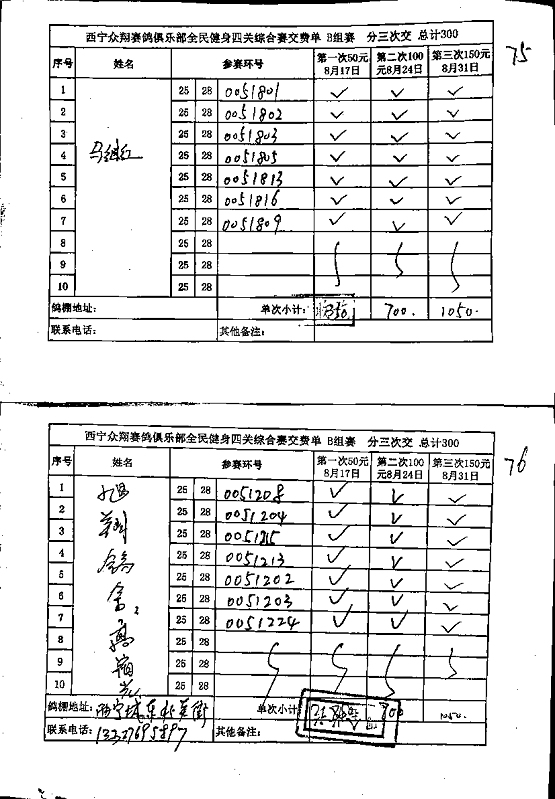 西宁众翔赛鸽俱乐部全民健身四关综合赛交费单 B组赛 分三次交 总计300
75
序号 姓名 参赛环号 第一次50元 8月17日 第二次100元8月24日 第三次150元 8月31日
1 25 28 0051801 ✓ ✓ ✓
2 25 28 0051802 ✓ ✓ ✓
3 25 28 0051803 ✓ ✓ ✓
马继红
4 25 28 0051805 ✓ ✓ ✓
5 25 28 0051813 ✓ ✓ ✓
6 25 28 0051816 ✓ ✓ ✓
7 25 28 0051809 ✓ ✓ ✓
8 25 28
9 25 28
10 25 28
鸽棚地址: 单次小计: 350 700. 1050.
联系电话: 其他备注:
西宁众翔赛鸽俱乐部全民健身四关综合赛交费单 B组赛 分三次交 总计300
76
序号 姓名 参赛环号 第一次50元 8月17日 第二次100元8月24日 第三次150元 8月31日
1 25 28 0051208 ✓ ✓ ✓
2 25 28 0051204 ✓ ✓ ✓
3 25 28 ✓ ✓ ✓
4 25 28 0051213 ✓ ✓ ✓
5 25 28 0051202 ✓ ✓ ✓
6 25 28 0051203 ✓ ✓ ✓
7 25 28 0051224 ✓ ✓ ✓
8 25 28
9 25 28
10 25 28
鸽棚地址: 西宁城东 单次小计 700 1050.
联系电话: 其他备注: